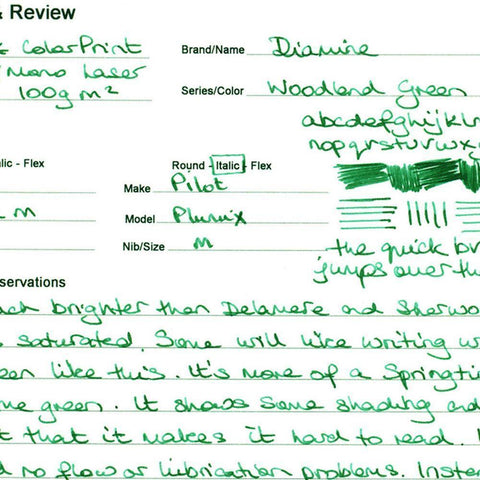 & Review
ColorPrint Brand/Name Diamine
Mono Laser
100g m² Series/Color Woodland Green
abcdefghijkl
nopqrstuvwxy
- Flex Round - Italic - Flex
Make Pilot
M Model Plumix
Nib/Size M
the quick br
jumps over th
servations
brighter than Delamere and Sherwo
saturated. Some will like writing w
like this. It's more of a Springti
green. It shows some shading and
that it makes it hard to read.
no flow or lubrication problems. Inste